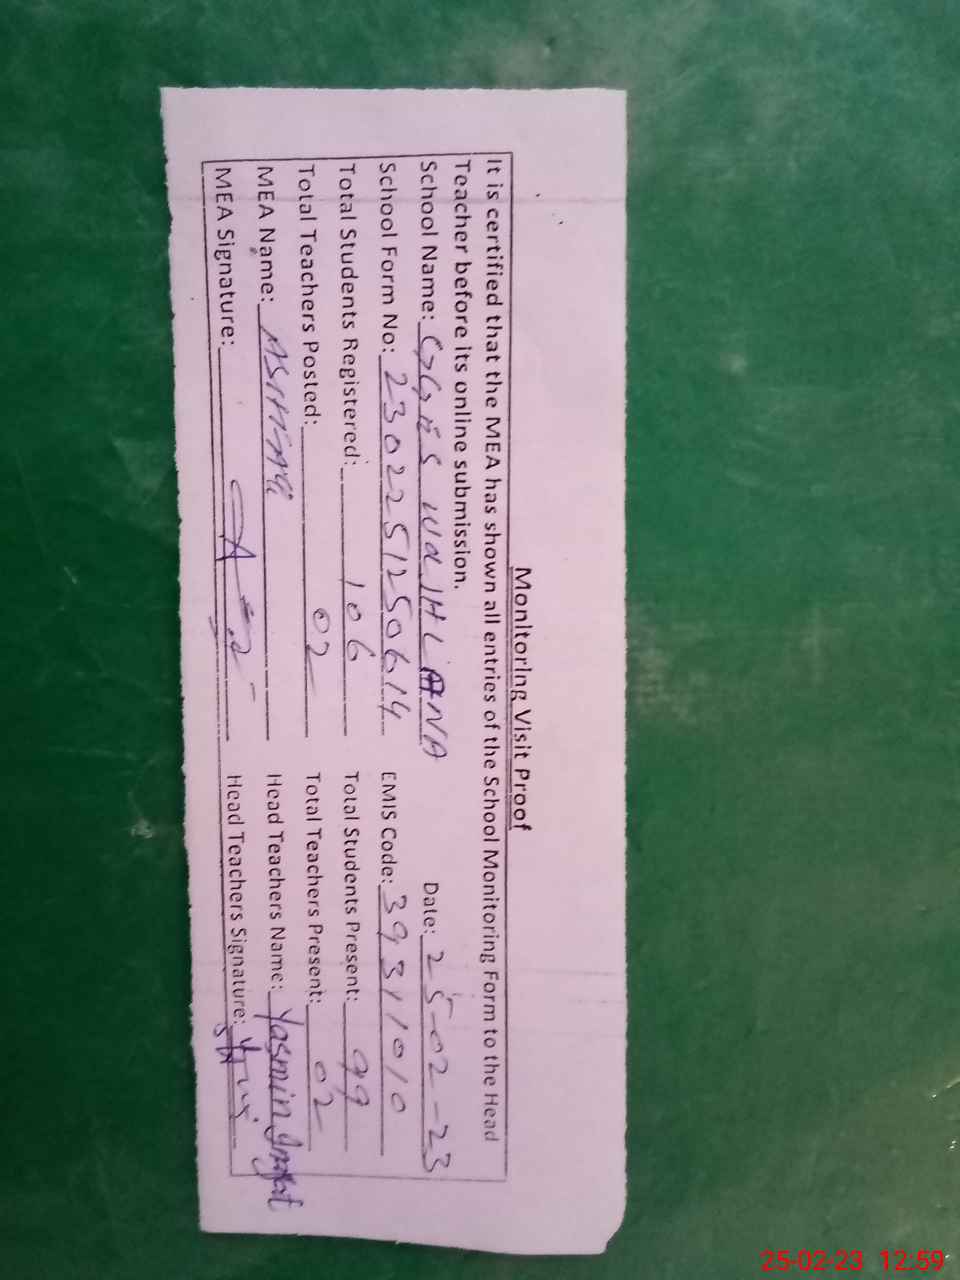 Monitoring Visit Proof
It is certified that the MEA has shown all entries of the School Monitoring Form to the Head
Teacher before its online submission.
School Name: Date: 25-02-23
School Form No: 2302251250614 EMIS Code: 39311010
Total Students Registered: 106 Total Students Present: 99
Total Teachers Posted: 02 Total Teachers Present: 02
MEA Name: Head Teachers Name: Yasmin
MEA Signature: Head Teachers Signature:
25-02-23 12:59